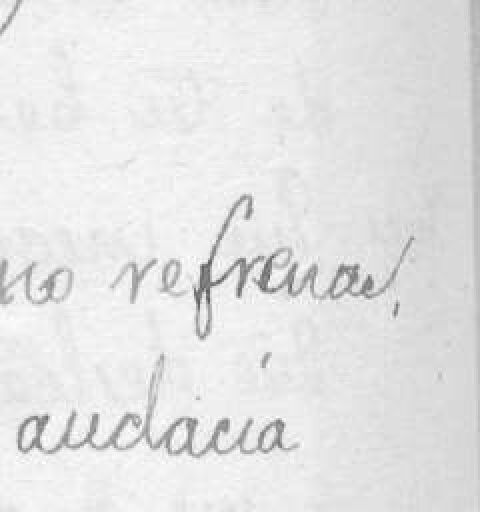 no refrena,
audacia